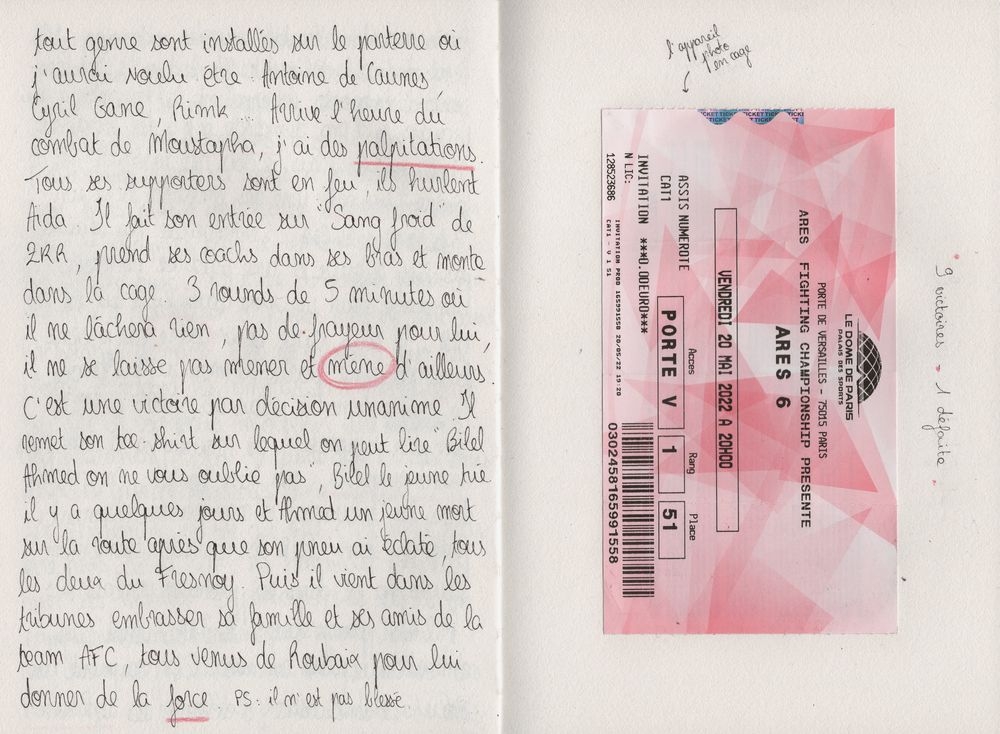 tout genre sont installés sur le parterre où
j'aurai voulu être. Antoine de Caunes,
Cyril Gane, Rimk... Arrive l'heure du
combat de Moustapha, j'ai des palpitations.
Tous ses supporters sont en feu, ils hurlent
Aida. Il fait son entrée sur "Sang froid" de
ZKR, prend ses coachs dans ses bras et monte
dans la cage. 3 rounds de 5 minutes où
il ne lâchera rien, pas de frayeur pour lui,
il ne se laisse pas mener et mène d'ailleurs.
C'est une victoire par décision unanime. Il
remet son tee-shirt sur lequel on peut lire "Bilel
Ahmed on ne vous oublie pas", Bilel le jeune tué
il y a quelques jours et Ahmed un jeune mort
sur la route après que son pneu ai éclaté, tous
les deux du Fresnoy. Puis il vient dans les
tribunes embrasser sa famille et ses amis de la
team AFC, tous venus de Roubaix pour lui
donner de la force. PS: il n'est pas blessé.
l'appareil
photo
en cage
TICKET TICKET TICKET
LE DOME DE PARIS
PALAIS DES SPORTS
PORTE DE VERSAILLES - 75015 PARIS
ARES 6
ARES FIGHTING CHAMPIONSHIP PRESENTE
VENDREDI 20 MAI 2022 A 20H00
Acces Rang Place
PORTE V 1 51
ASSIS NUMEROTE
CAT1
INVITATION ***0.00EURO***
N LIC:
128523686
INVITATION PROD 165991558 20/05/22 19:20
CAT1 - V 1 51
03024581659915​58
9 victoires • 1 défaite.